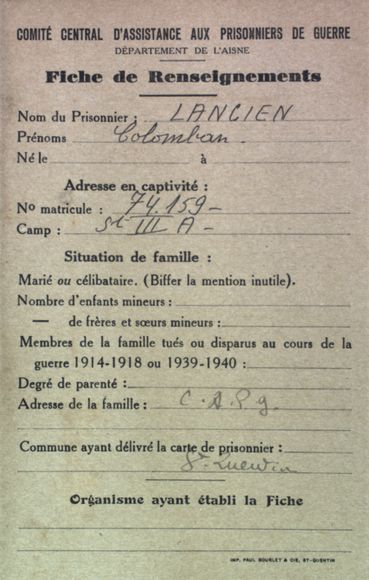 COMITÉ CENTRAL D'ASSISTANCE AUX PRISONNIERS DE GUERRE
DÉPARTEMENT DE L'AISNE
Fiche de Renseignements
Nom du Prisonnier : LANCIEN
Prénoms Colomban.
Né le à
Adresse en captivité :
No matricule : 74.159 –
Camp : St III A –
Situation de famille :
Marié ou célibataire. (Biffer la mention inutile).
Nombre d'enfants mineurs :
— de frères et sœurs mineurs :
Membres de la famille tués ou disparus au cours de la
guerre 1914-1918 ou 1939-1940 :
Degré de parenté :
Adresse de la famille : C.A.P.g.
Commune ayant délivré la carte de prisonnier :
St Quentin
Organisme ayant établi la Fiche
IMP. PAUL BOURLET & CIE, ST-QUENTIN